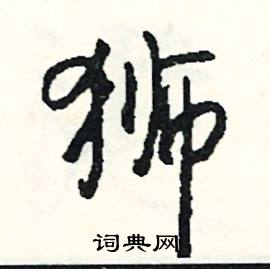 狮
词典网